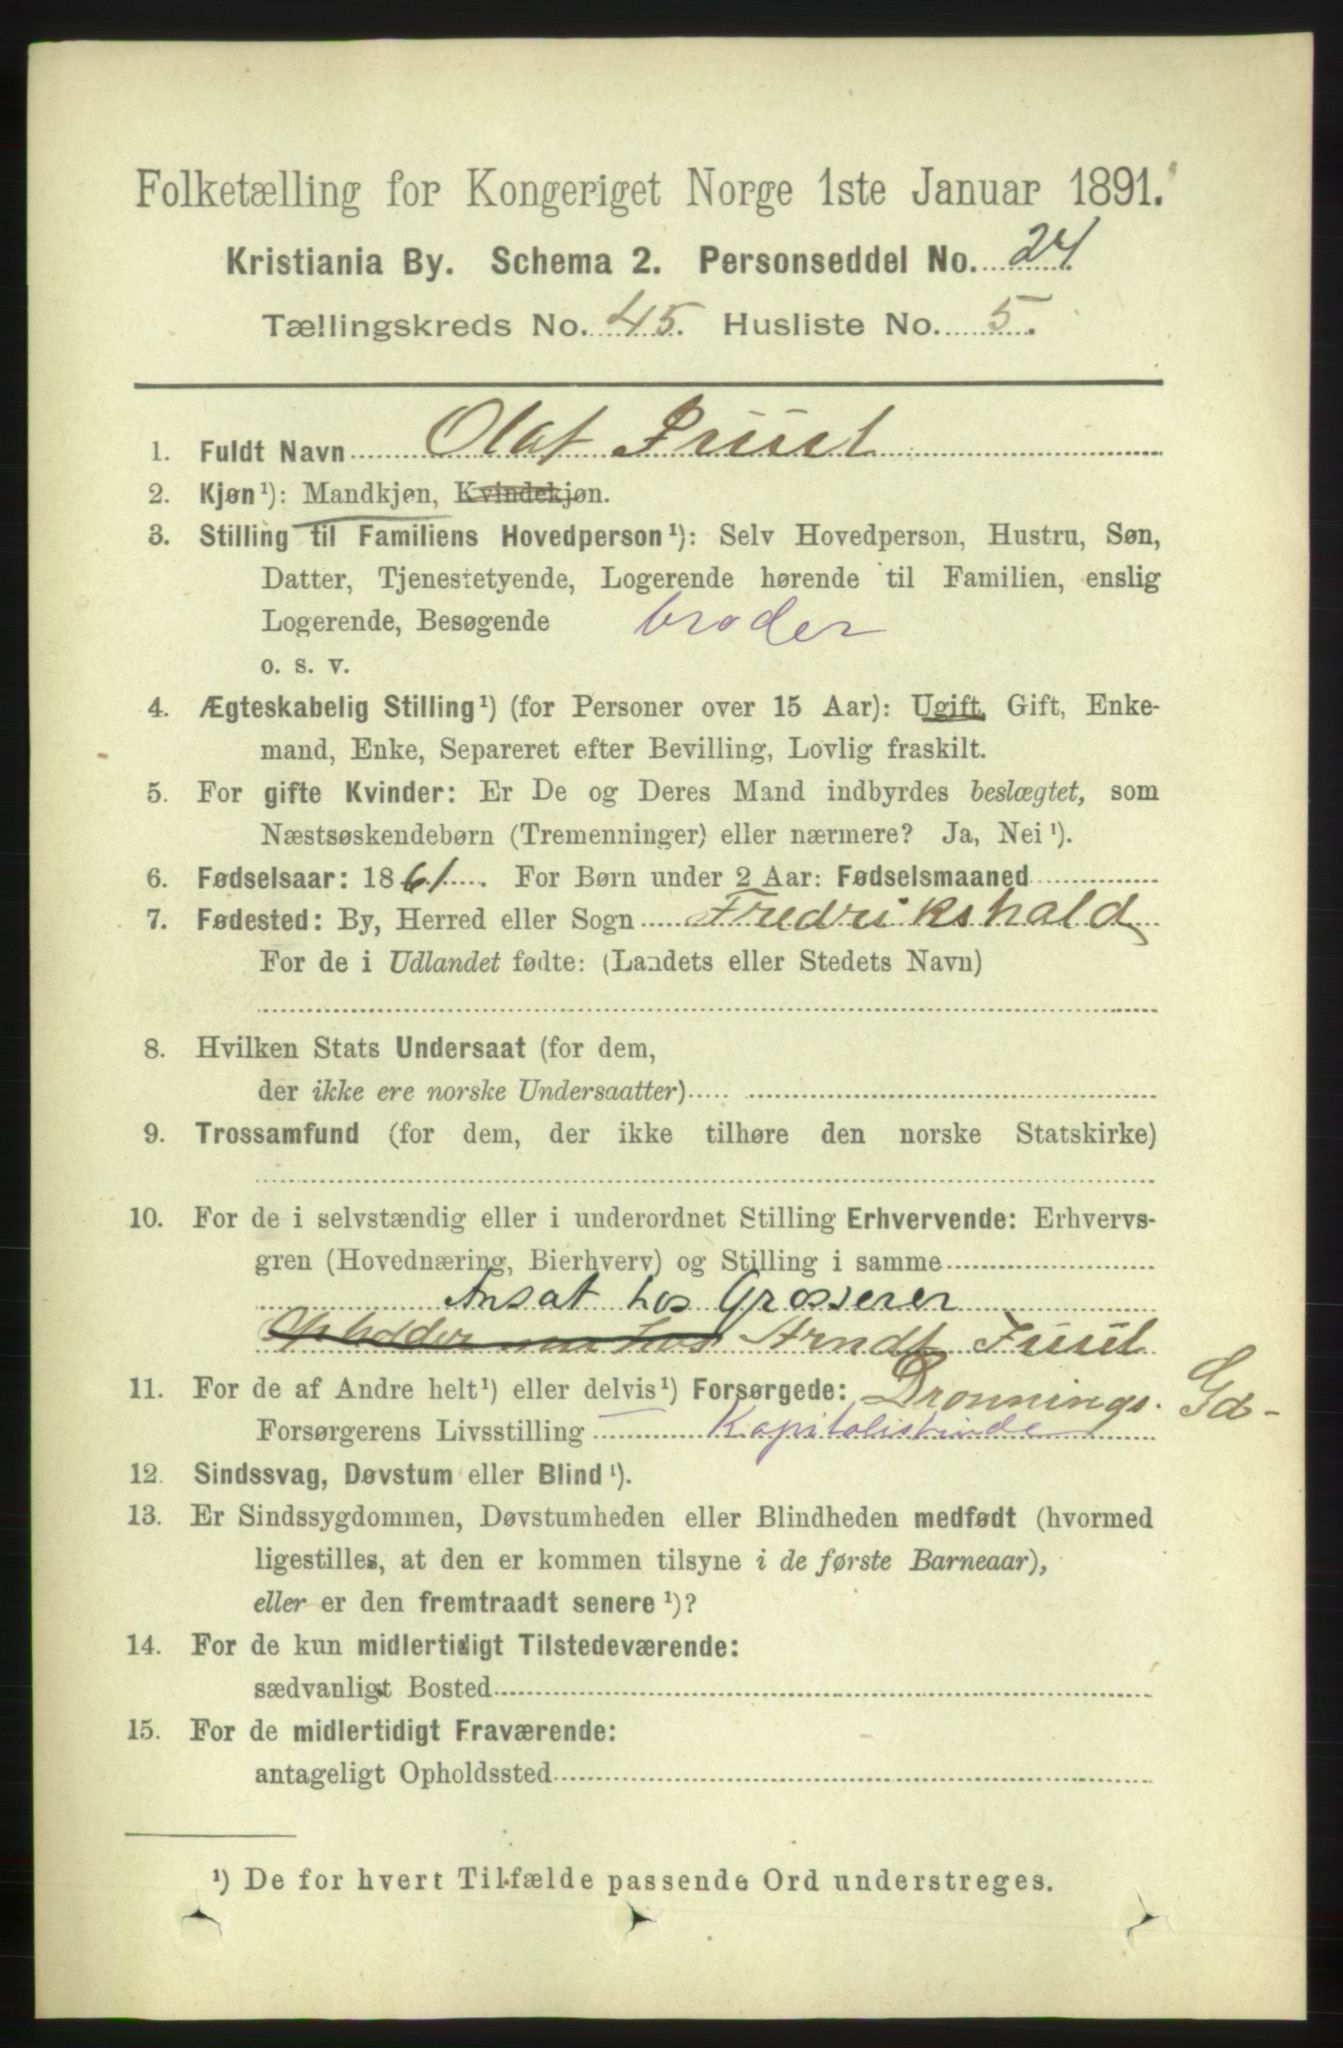 Folketælling for Kongeriget Norge 1ste Januar 1891.
Kristiania By. Schema 2. Personseddel No. 24
Tællingskreds No. 45. Husliste No. 5.
1. Fuldt Navn Olaf Juul
2. Kjøn¹): Mandkjøn, Kvindekjøn.
3. Stilling til Familiens Hovedperson¹): Selv Hovedperson, Hustru, Søn,
Datter, Tjenestetyende, Logerende hørende til Familien, enslig
Logerende, Besøgende broder
o. s. v.
4. Ægteskabelig Stilling¹) (for Personer over 15 Aar): Ugift, Gift, Enke-
mand, Enke, Separeret efter Bevilling, Lovlig fraskilt.
5. For gifte Kvinder: Er De og Deres Mand indbyrdes beslægtet, som
Næstsøskendebørn (Tremenninger) eller nærmere? Ja, Nei¹).
6. Fødselsaar: 1861. For Børn under 2 Aar: Fødselsmaaned
7. Fødested: By, Herred eller Sogn Fredrikshald
For de i Udlandet fødte: (Landets eller Stedets Navn)
8. Hvilken Stats Undersaat (for dem,
der ikke ere norske Undersaatter)
9. Trossamfund (for dem, der ikke tilhøre den norske Statskirke)
10. For de i selvstændig eller i underordnet Stilling Erhvervende: Erhvervs-
gren (Hovednæring, Bierhverv) og Stilling i samme
Ansat hos Grosserer
hos Arndt Juul
11. For de af Andre helt¹) eller delvis¹) Forsørgede: Dronnings. Gd-
Forsørgerens Livsstilling Kapitalistinde
12. Sindssvag, Døvstum eller Blind¹).
13. Er Sindssygdommen, Døvstumheden eller Blindheden medfødt (hvormed
ligestilles, at den er kommen tilsyne i de første Barneaar),
eller er den fremtraadt senere¹)?
14. For de kun midlertidigt Tilstedeværende:
sædvanligt Bosted
15. For de midlertidigt Fraværende:
antageligt Opholdssted
¹) De for hvert Tilfælde passende Ord understreges.